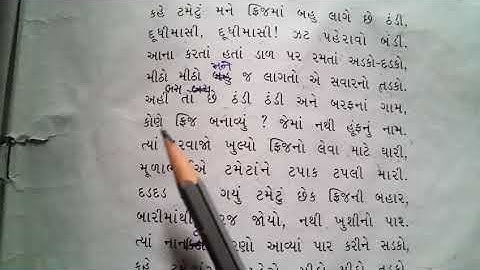 કહે ટમેટું મને ફ્રિજમાં બહુ લાગે છે ઠંડી,
દૂધીમાસી, દૂધીમાસી! ઝટ પહેરાવો બંડી.
આના કરતાં હતાં ડાળ પર રમતાં અડકો-દડકો,
મને
મીઠો મીઠો જ લાગતો એ સવારનો તડકો.
બસ
અહીં તો છે ઠંડી ઠંડી અને બરફનાં ગામ,
કોણે ફ્રિજ બનાવ્યું ? જેમાં નથી હૂંફનું નામ.
ત્યાં ખુલ્યો ફ્રિજનો લેવા માટે ઘારી,
ટમેટાંને ટપાક ટપલી મારી.
દડદડ ગયું ટમેટું છેક ફ્રિજની બહાર,
જોયો, નથી ખુશીનો પાર.
ત્યાં આવ્યાં પાર કરીને સડકો,
કહે